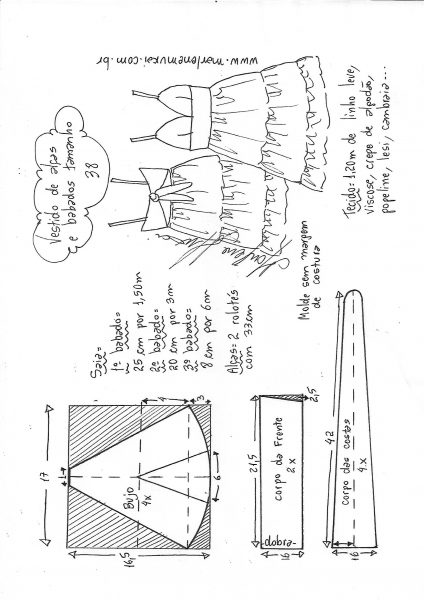 www.marlenemukai.com.br
Vestido de alças
e babados tamanho
38
Tecido= 1,20m de linho leve,
viscose, crepe de algodão,
popeline, lesi, cambraia...
Marlene
Mukai
Saia=
1º babado=
25 cm por 1,50m
2º babado=
20 cm por 3m
3º babado=
8 cm por 6m
Alças= 2 rolotés
com 37cm
Molde sem margem
de costura
17
1
4
3
Bujo
4x
6
16,5
21,5
2,5
corpo da frente
2x
dobra
16
42
corpo das costas
4x
16